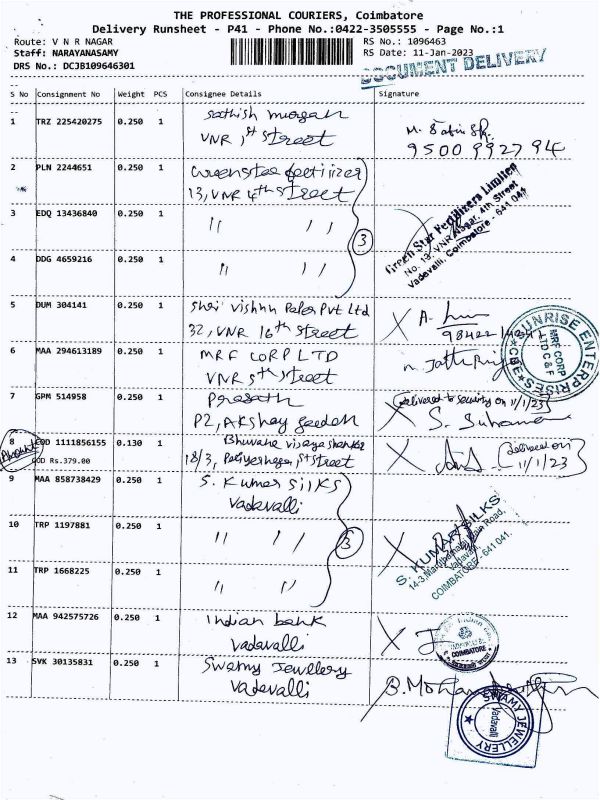 THE PROFESSIONAL COURIERS, Coimbatore
Delivery Runsheet - P41 - Phone No.:0422-3505555 - Page No.:1
Route: V N R NAGAR
RS No.: 1096463
Staff: NARAYANASAMY
RS Date: 11-Jan-2023
DRS No.: DCJB109646301
DOCUMENT DELIVERY
S No Consignment No Weight PCS Consignee Details Signature
1 TRZ 225420275 0.250 1 Sathish murgan
VNR 1st Street
9500992794
2 PLN 2244651 0.250 1 Greenstar fertilizer
13, VNR 4th Street
Green Star Fertilizers Limited
No. 13, VNR Nagar, 4th Street
Vadavalli, Coimbatore - 641 041
3 EDQ 13436840 0.250 1 " "
3
4 DDG 4659216 0.250 1 " "
5 DUM 304141 0.250 1 Shri vishnu Paper Pvt Ltd
32, VNR 16th Street
6 MAA 294613189 0.250 1 MRF CORP LTD
VNR 5th Street
SUNRISE ENTERPRISES
MRF CORP
LTD C & F
CBE
7 GPM 514958 0.250 1 Prasath
P2, Akshay garden
Delivered to security on 11/1/23
8 COD 1111856155 0.130 1 Bhuvana
COD Rs.379.00
18/3, Street
delivered on
11/1/23
9 MAA 858738429 0.250 1 S. Kumar Silks
Vadavalli
10 TRP 1197881 0.250 1 " "
3
S. KUMAR SILKS
Road,
Vadavalli,
COIMBATORE - 641 041.
11 TRP 1668225 0.250 1 " "
12 MAA 942575726 0.250 1 Indian bank
Vadavalli
COIMBATORE
13 SVK 30135831 0.250 1 Swamy Jewellery
Vadavalli
SWAMY JEWELLERY
Vadavalli